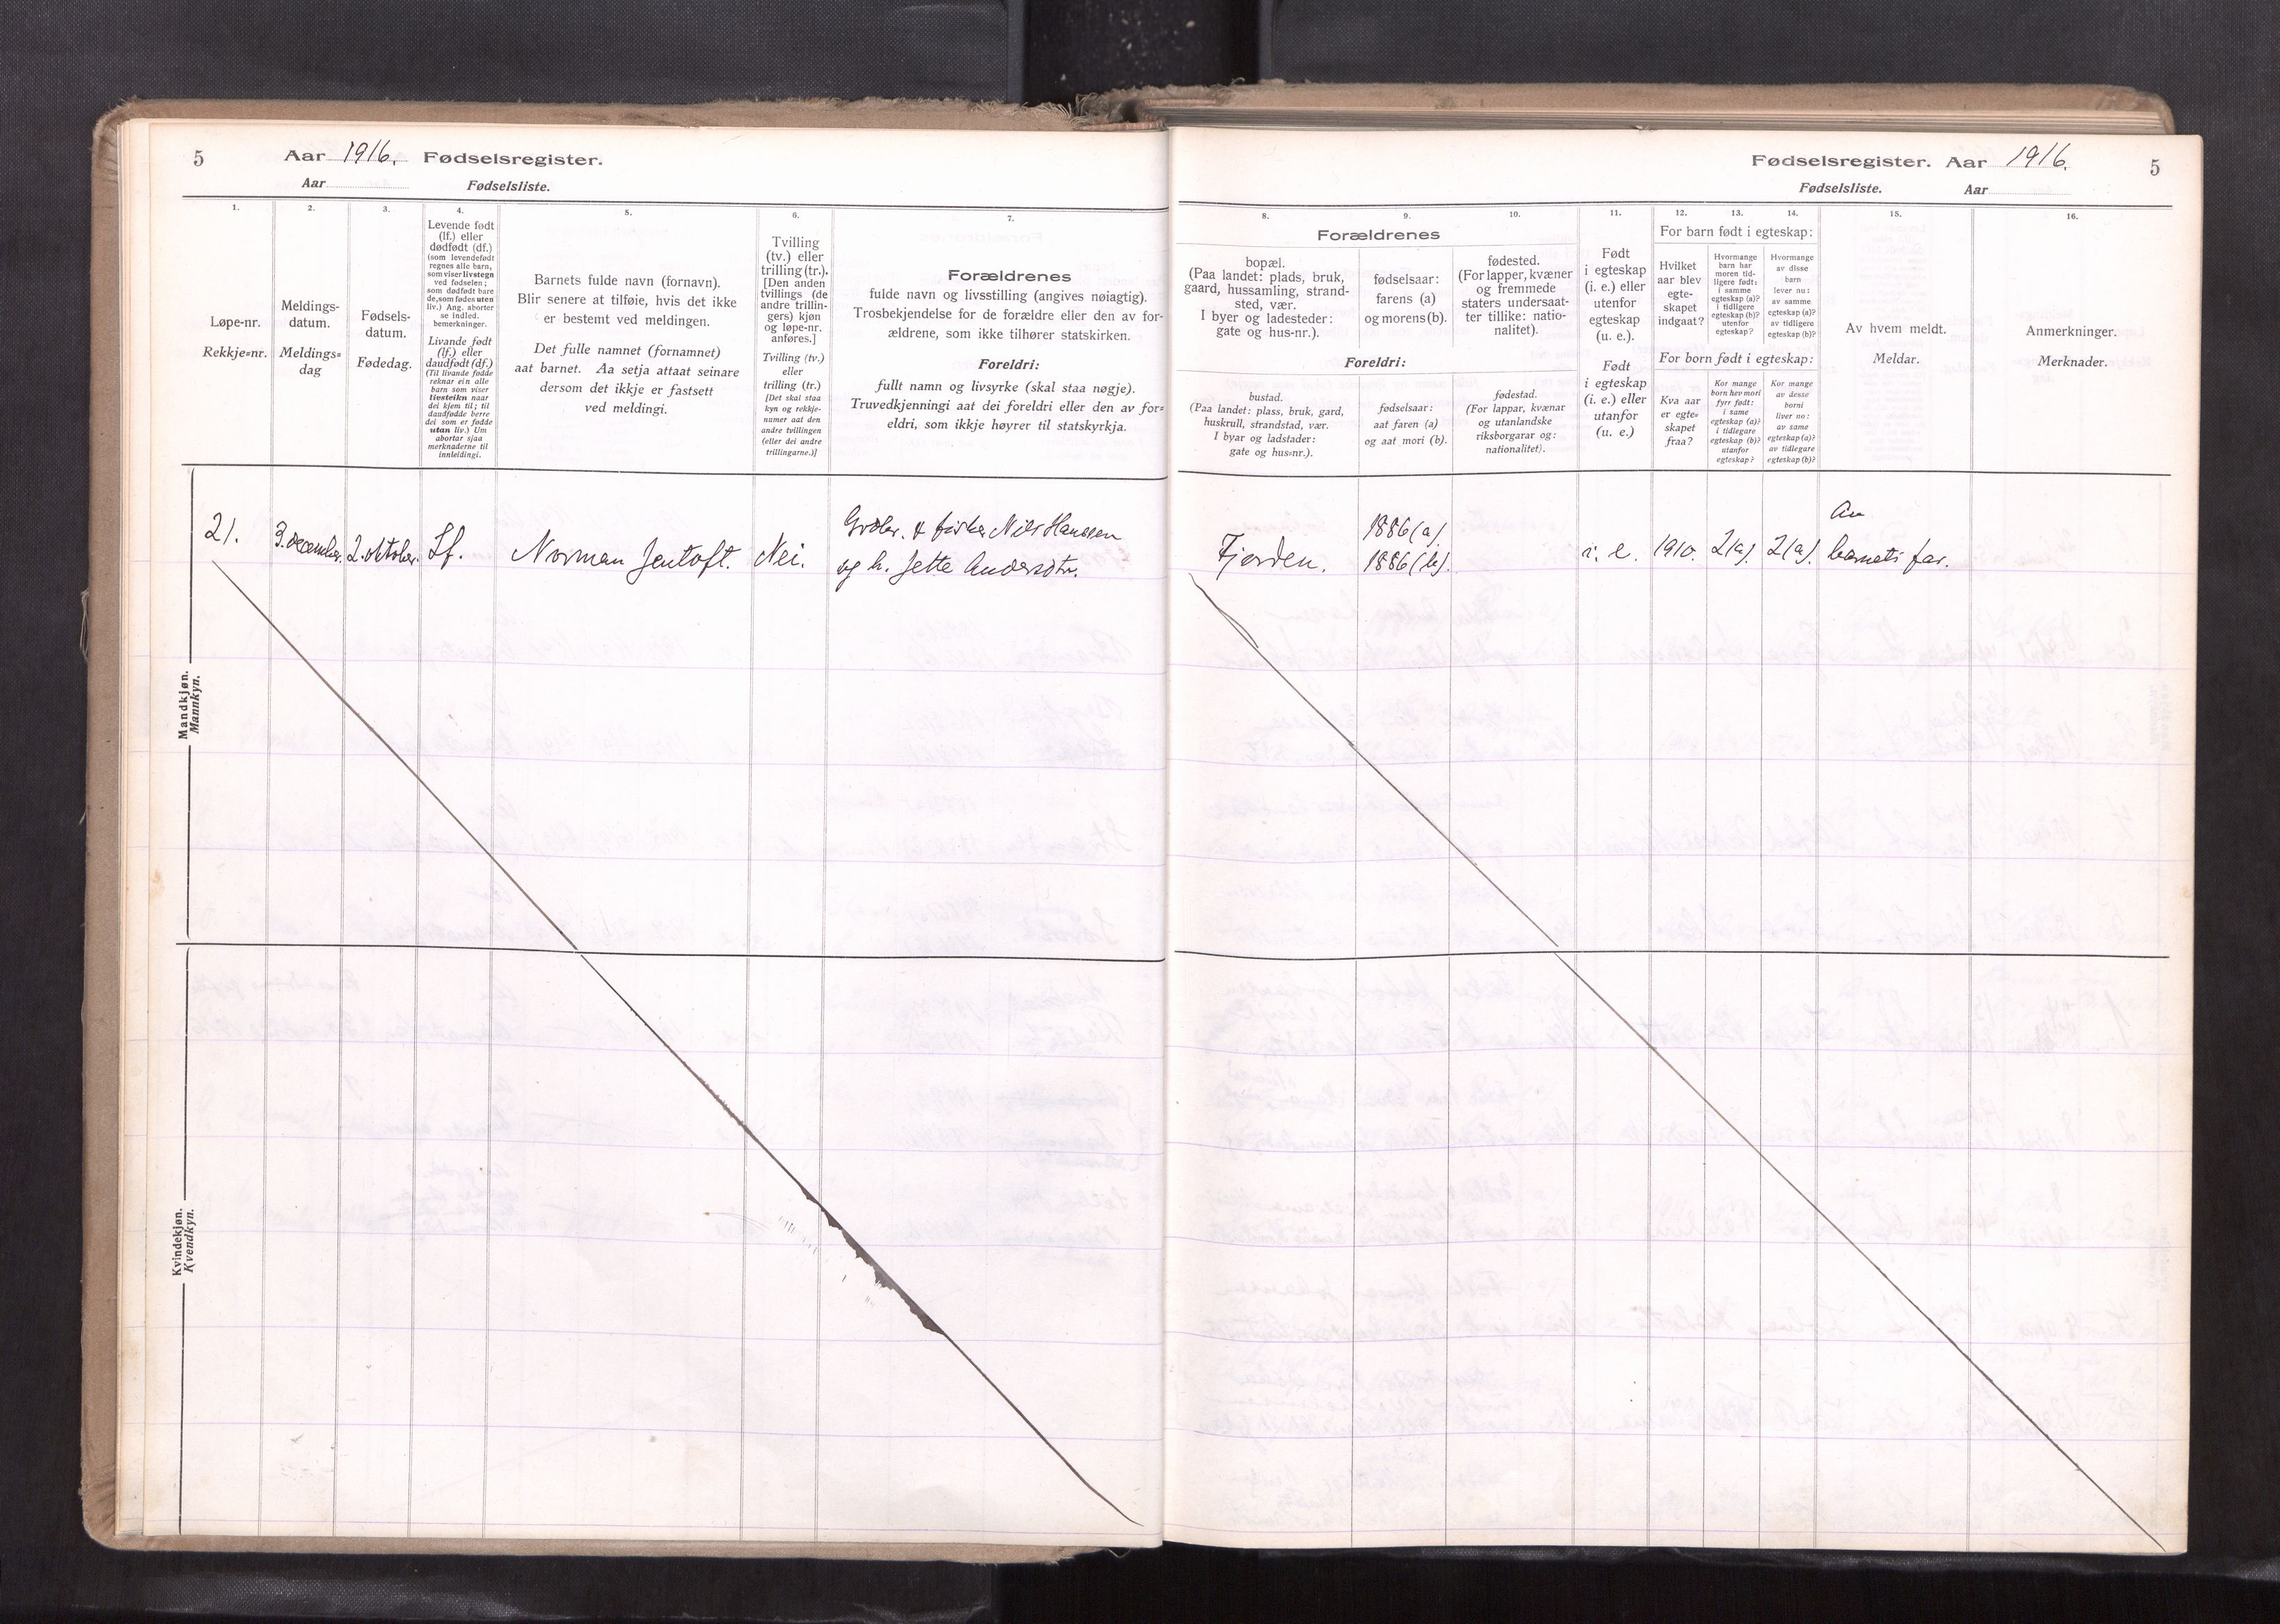 5 Aar 1916. Fødselsregister.
Aar Fødselsliste.
Fødselsregister. Aar 1916. 5
Fødselsliste. Aar
1.
Løpe-nr.
Rekkje=nr.
2.
Meldings-
datum.
Meldings=
dag
3.
Fødsels-
datum.
Fødedag.
4.
Levende født
(lf.) eller
dødfødt (df.)
(som levendefødt
regnes alle barn,
som viser livstegn
ved fødselen;
som dødfødt bare
de, som fødes uten
liv.) Ang. aborter
se indled.
bemerkninger.
Livande født
(lf.) eller
daudfødt (df.)
(Til livande fødde
reknar ein alle
barn som viser
livsteikn naar
dei kjem til; til
daudfødde berre
dei som er fødde
utan liv.) Um
abortar sjaa
merknaderne til
innleidingi.
5.
Barnets fulde navn (fornavn).
Blir senere at tilføie, hvis det ikke
er bestemt ved meldingen.
Det fulle namnet (fornamnet)
aat barnet. Aa setja attaat seinare
dersom det ikkje er fastsett
ved meldingi.
6.
Tvilling
(tv.) eller
trilling (tr.).
[Den anden
tvillings (de
andre trillin-
gers) kjøn
og løpe-nr.
anføres.]
Tvilling (tv.)
eller
trilling (tr.)
[Det skal staa
kyn og rekkje-
numer aat den
andre tvillingen
(eller dei andre
trillingarne.)]
7.
Forældrenes
fulde navn og livsstilling (angives nøiagtig).
Trosbekjendelse for de forældre eller den av for-
ældrene, som ikke tilhører statskirken.
Foreldri:
fullt namn og livsyrke (skal staa nøgje).
Truvedkjenningi aat dei foreldri eller den av for=
eldri, som ikkje høyrer til statskyrkja.
Forældrenes
8.
bopæl.
(Paa landet: plads, bruk,
gaard, hussamling, strand-
sted, vær.
I byer og ladesteder:
gate og hus-nr.).
9.
fødselsaar:
farens (a)
og morens (b).
10.
fødested.
(For lapper, kvæner
og fremmede
staters undersaat-
ter tillike: natio-
nalitet).
Foreldri:
bustad.
(Paa landet: plass, bruk, gard,
huskrull, strandstad, vær.
I byar og ladstader:
gate og hus=nr.).
fødselsaar:
aat faren (a)
og aat mori (b).
fødestad.
(For lappar, kvænar
og utanlandske
riksborgarar og:
nationalitet).
11.
Født
i egteskap
(i. e.) eller
utenfor
egteskap
(u. e.).
Født
i egteskap
(i. e.) eller
utanfor
(u. e.)
For barn født i egteskap:
12.
Hvilket
aar blev
egte-
skapet
indgaat?
13.
Hvormange
barn har
moren tid-
ligere født:
i samme
egteskap (a)?
i tidligere
egteskap (b)?
utenfor
egteskap?
14.
Hvormange
av disse
barn
lever nu:
av samme
egteskap (a)?
av tidligere
egteskap (b)?
For born født i egteskap:
Kva aar
er egte=
skapet
fraa?
Kor mange
born hev mori
fyrr født:
i same
egteskap (a)?
i tidlegare
egteskap (b)?
utanfor
egteskap?
Kor mange
av desse
borni
liver no:
av same
egteskap (a)?
av tidlegare
egteskap (b)?
15.
Av hvem meldt.
Meldar.
16.
Anmerkninger.
Merknader.
Mandkjøn.
Mannkyn.
21. 3. december. 2. oktober. Lf. Norman Jentoft. Nei.
Grdbr. & fisker Nils Hanssen
og h. Jette Andersdtr.
Fjorden.
1886 (a).
1886 (b).
i. e. 1910. 2(a). 2(a).
Av
barnets far.
Kvindekjøn.
Kvendkyn.